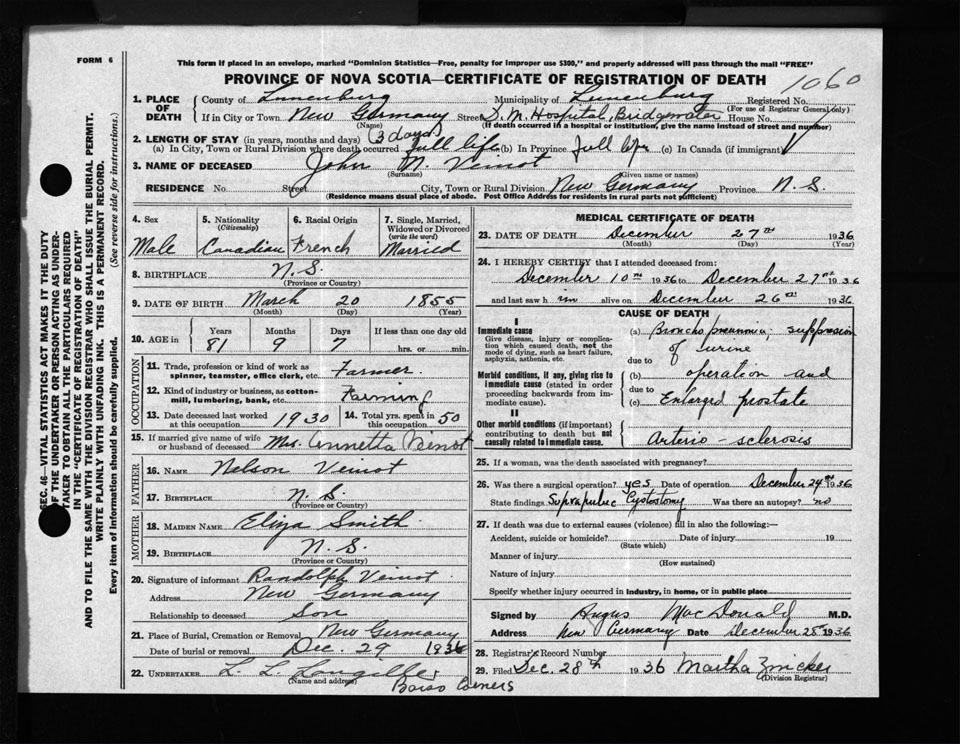 FORM 6
This form if placed in an envelope, marked "Dominion Statistics—Free, penalty for improper use $300," and properly addressed will pass through the mail "FREE"
PROVINCE OF NOVA SCOTIA—CERTIFICATE OF REGISTRATION OF DEATH
1060
1. PLACE OF DEATH
County of Lunenburg Municipality of Lunenburg Registered No.
(For use of Registrar General only)
If in City or Town New Germany Street D. M. Hospital, Bridgewater House No.
(Name) (If death occurred in a hospital or institution, give the name instead of street and number)
2. LENGTH OF STAY (in years, months and days) (3 days)
(a) In City, Town or Rural Division where death occurred full life (b) In Province full life (c) In Canada (if immigrant)
3. NAME OF DECEASED John M. Veinot
(Surname) (Given name or names)
RESIDENCE No Street City, Town or Rural Division New Germany Province N.S.
(Residence means usual place of abode. Post Office Address for residents in rural parts not sufficient)
4. Sex Male
5. Nationality (Citizenship) Canadian
6. Racial Origin French
7. Single, Married, Widowed or Divorced (write the word) Married
8. BIRTHPLACE N.S.
(Province or Country)
9. DATE OF BIRTH March 20 1855
(Month) (Day) (Year)
10. AGE in Years Months Days If less than one day old
81 9 7 hrs. or min.
OCCUPATION
11. Trade, profession or kind of work as spinner, teamster, office clerk, etc. Farmer.
12. Kind of industry or business, as cotton-mill, lumbering, bank, etc. Farming
13. Date deceased last worked at this occupation 1930
14. Total yrs. spent in this occupation 50
15. If married give name of wife or husband of deceased Mrs. Annetta Veinot
FATHER
16. NAME Nelson Veinot
17. BIRTHPLACE N.S.
(Province or Country)
MOTHER
18. MAIDEN NAME Eliza Smith
19. BIRTHPLACE N.S.
(Province or Country)
20. Signature of informant Randolph Veinot
Address New Germany
Relationship to deceased Son
21. Place of Burial, Cremation or Removal New Germany
Date of burial or removal Dec. 29 1936
22. UNDERTAKER L. L. Langille
(Name and address) Barss Corners
MEDICAL CERTIFICATE OF DEATH
23. DATE OF DEATH December 27th 1936
(Month) (Day) (Year)
24. I HEREBY CERTIFY that I attended deceased from:
December 10th 1936 to December 27th 1936
and last saw h im alive on December 26th 1936
CAUSE OF DEATH
I
Immediate cause
Give disease, injury or complication which caused death, not the mode of dying, such as heart failure, asphyxia, asthenia, etc.
(a) Bronchopneumnia; suppression of urine
due to
Morbid conditions, if any, giving rise to immediate cause (stated in order proceeding backwards from immediate cause).
(b) operation and
due to
(c) Enlarged prostate
II
Other morbid conditions (if important) contributing to death but not causally related to immediate cause.
Arterio-sclerosis
25. If a woman, was the death associated with pregnancy?
26. Was there a surgical operation? yes Date of operation December 24th 1936
State findings Suprapubic Cystostomy Was there an autopsy? no
27. If death was due to external causes (violence) fill in also the following:—
Accident, suicide or homicide? Date of injury 19
(State which)
Manner of injury
(How sustained)
Nature of injury
Specify whether injury occurred in industry, in home, or in public place
Signed by Angus MacDonald M.D.
Address New Germany Date December 28th 1936
28. Registrar's Record Number
29. Filed Dec. 28th 1936 Martha Zwicker
(Division Registrar)
SEC. 46—VITAL STATISTICS ACT MAKES IT THE DUTY
OF THE UNDERTAKER OR PERSON ACTING AS UNDER-
TAKER TO OBTAIN ALL THE PARTICULARS REQUIRED
IN THE "CERTIFICATE OF REGISTRATION OF DEATH"
AND TO FILE THE SAME WITH THE DIVISION REGISTRAR WHO SHALL ISSUE THE BURIAL PERMIT.
WRITE PLAINLY WITH UNFADING INK. THIS IS A PERMANENT RECORD.
Every item of Information should be carefully supplied. (See reverse side for instructions.)